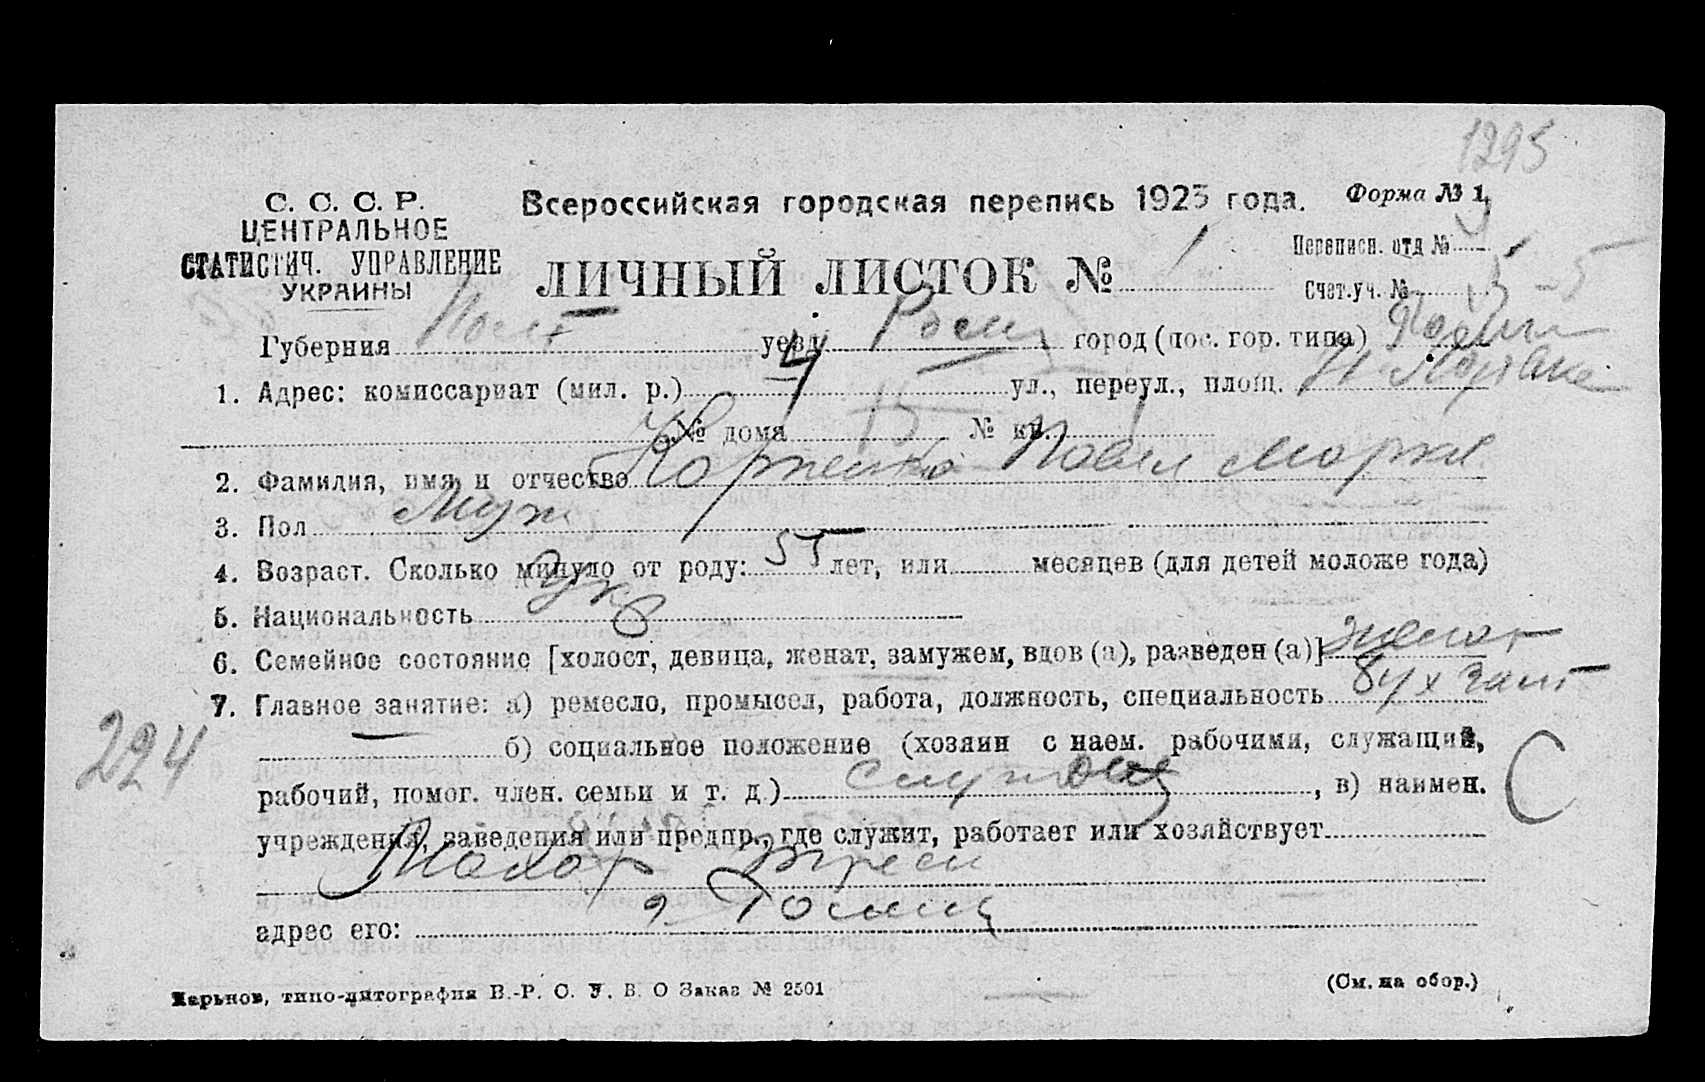 1295
С. С. С. Р.
ЦЕНТРАЛЬНОЕ
СТАТИСТИЧ. УПРАВЛЕНИЕ
УКРАИНЫ
Всероссийская городская перепись 1923 года.
Форма № 1
ЛИЧНЫЙ ЛИСТОК № 1
Переписн. отд №
Счет.уч. № 5
Губерния Полт уезд Ромн город (пос. гор. типа) Ромн
1. Адрес: комиссариат (мил. р.) 4 ул., переул., площ.
№ дома 15 № кв. 1
2. Фамилия, имя и отчество Павел Марк
3. Пол Муж
4. Возраст. Сколько минуло от роду: 55 лет, или месяцев (для детей моложе года)
5. Национальность Укр
6. Семейное состояние [холост, девица, женат, замужем, вдов (а), разведен (а)] женат
7. Главное занятие: а) ремесло, промысел, работа, должность, специальность бух
224
б) социальное положение (хозяин с наем. рабочими, служащий,
рабочий, помог. член. семьи и т. д.) служащ , в) наимен.
С
учреждения, заведения или предпр., где служит, работает или хозяйствует
Махор трест
адрес его: г Ромны
Харьков, типо-литография В.-Р. С. У. В. О Заказ № 2501
(См. на обор.)